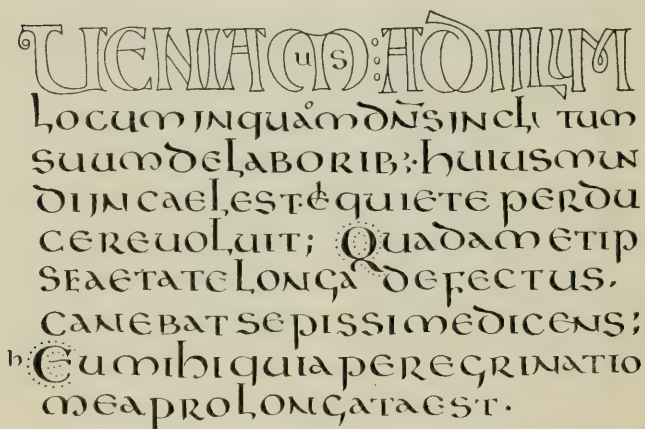 UENIAMus: AD ILLUM
locum in quåm dn̄s incli tum
suum de laborib;· huius mun
di in caelest·& quiete perdu
cere uoluit; Quadam et ip
se aetate longa defectus.
canebat sepissime dicens;
hEu mihi quia peregrinatio
mea prolongata est.